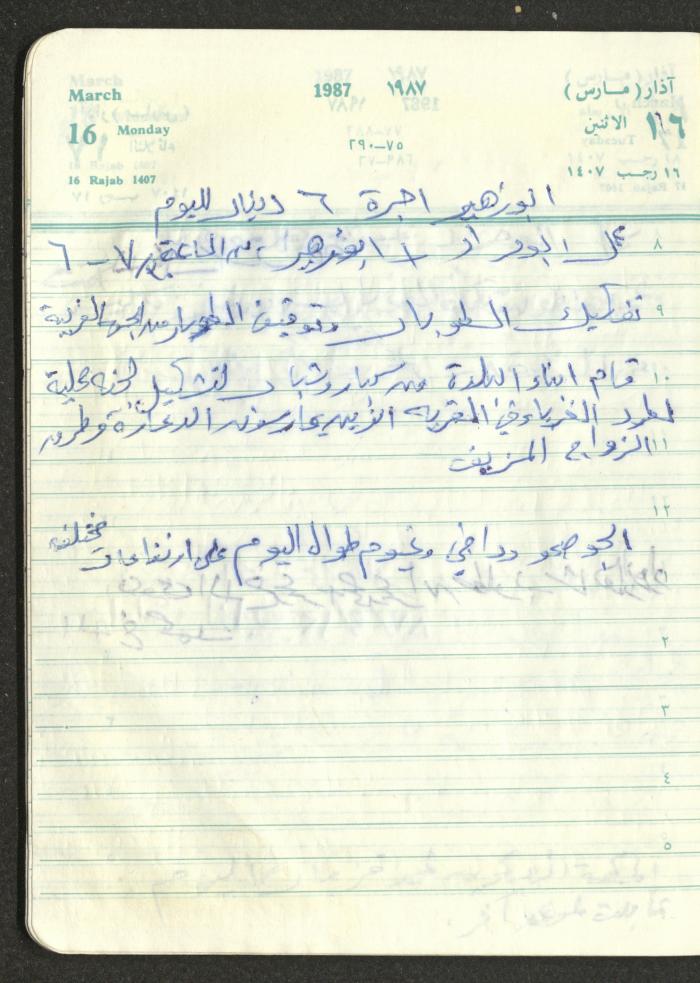 March 1987 ١٩٨٧ آذار (مارس)
16 Monday ٧٥-٢٩٠ الاثنين ١٦
16 Rajab 1407 ١٦ رجب ١٤٠٧
ابو زهير اجرة ٦ دينار لليوم
عمل ابو و ابو زهير من الساعة ٧ - ٦
٨
تفكيك الطوبار وتوقيف الطوبار من الجهة الغربية
٩
قام ابناء البلدة من كبار وشباب لتشكيل لجنة محلية
١٠
لطرد الغرباء في القرية الذين يمارسون الدعارة وطرق
الزواج المزيف
١١
١٢
الجو صحو ودافئ وغيوم طوال اليوم على ارتفاعات مختلفة
٢
٣
٤
٥